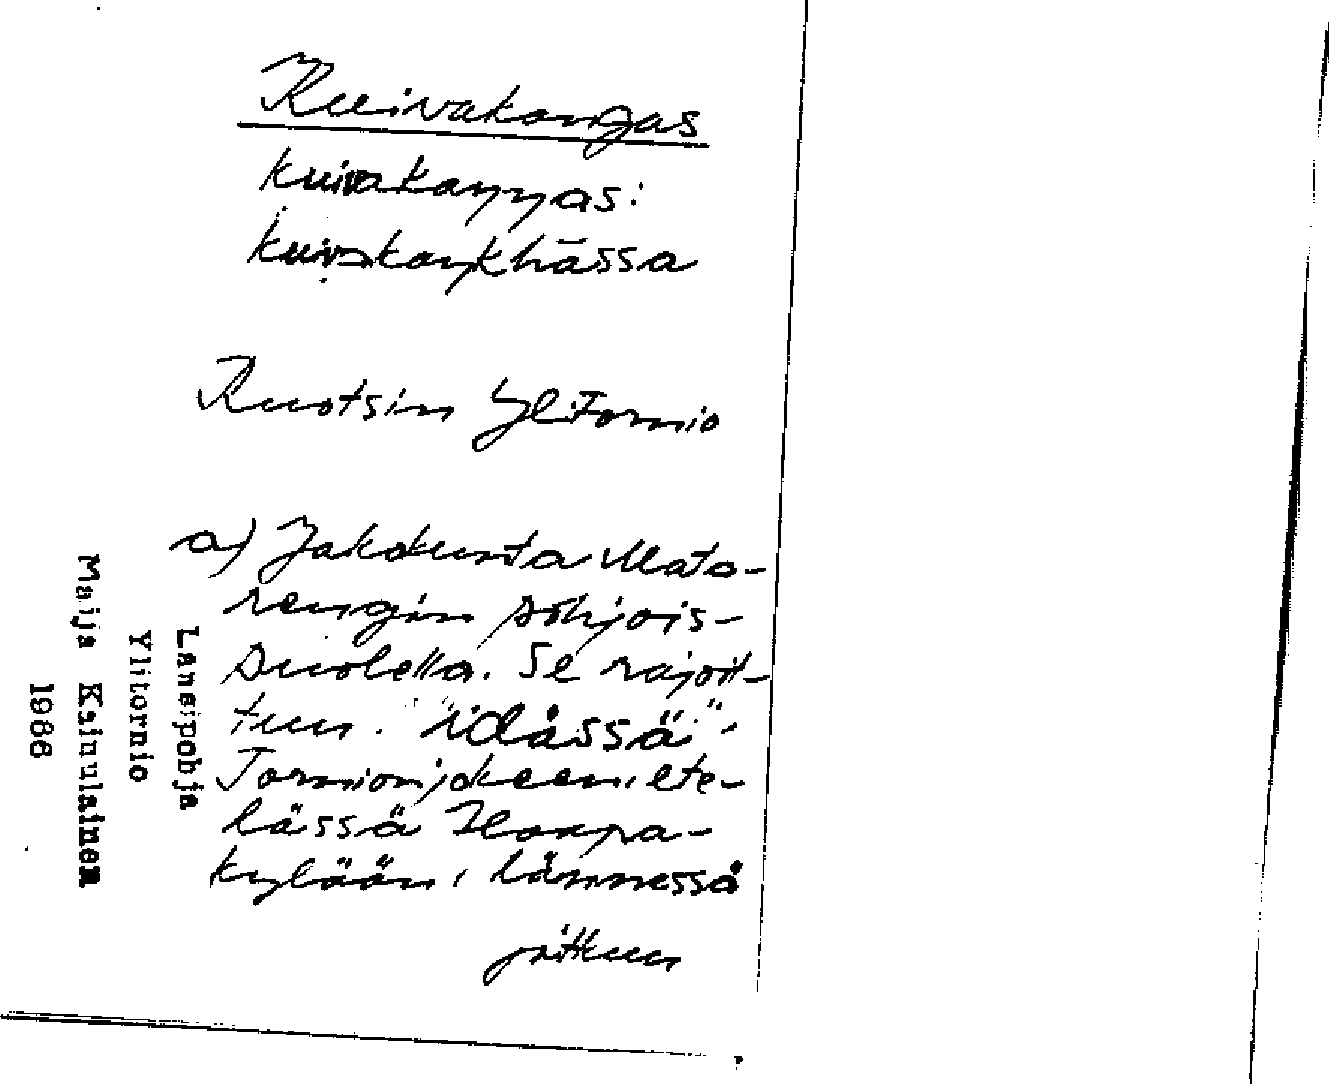 Kuivakangas
kuivakaŋŋas:
kuivakaŋkhãssa
Ruotsin Ylitornio
a) Jakokunta Mato-
rengin pohjois-
puolella. Se rajoit-
tuu "idässä"
Tornionjokeen, ete-
lässä Haapa-
kylään, lännessä
jatkuu
Länsipohja
Ylitornio
Maija Kainulainen
1986